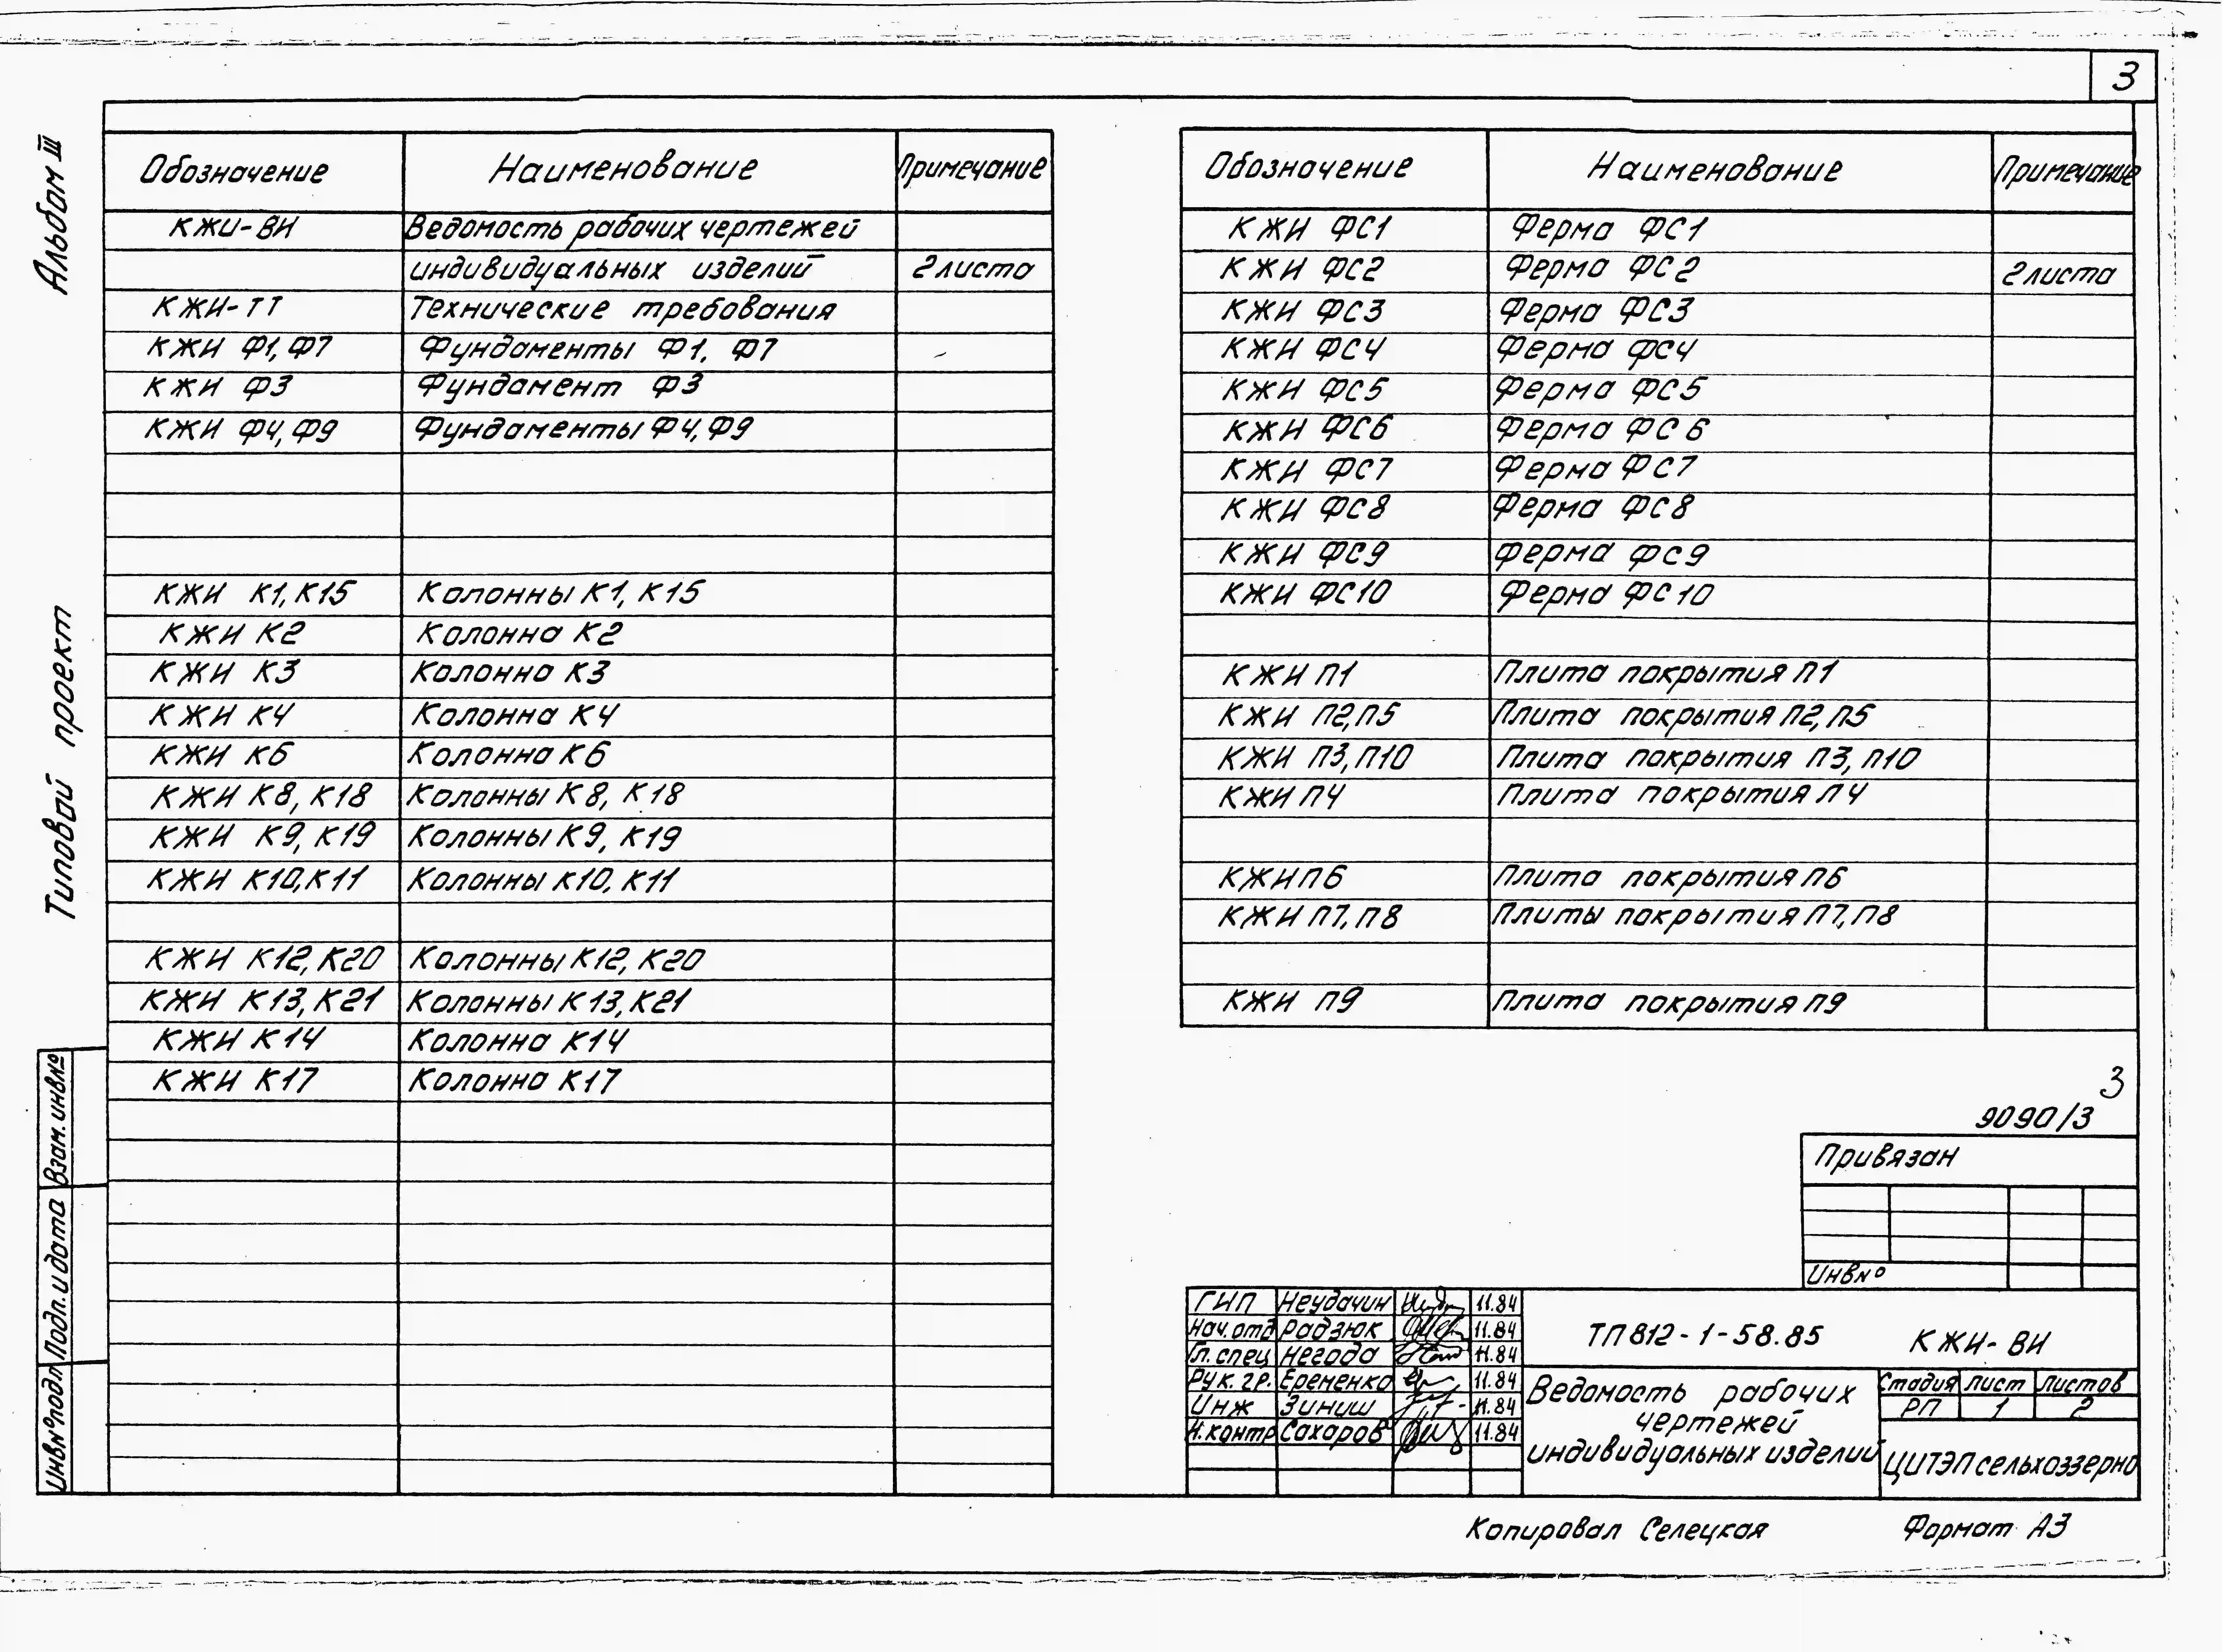 3
Альбом III
Типовой проект
Обозначение Наименование Примечание
КЖИ-ВИ Ведомость рабочих чертежей
индивидуальных изделий 2 листа
КЖИ-ТТ Технические требования
КЖИ Ф1, Ф7 Фундаменты Ф1, Ф7
КЖИ Ф3 Фундамент Ф3
КЖИ Ф4, Ф9 Фундаменты Ф4, Ф9
КЖИ К1, К15 Колонны К1, К15
КЖИ К2 Колонна К2
КЖИ К3 Колонна К3
КЖИ К4 Колонна К4
КЖИ К6 Колонна К6
КЖИ К8, К18 Колонны К8, К18
КЖИ К9, К19 Колонны К9, К19
КЖИ К10, К11 Колонны К10, К11
КЖИ К12, К20 Колонны К12, К20
КЖИ К13, К21 Колонны К13, К21
КЖИ К14 Колонна К14
КЖИ К17 Колонна К17
Обозначение Наименование Примечание
КЖИ ФС1 Ферма ФС1
КЖИ ФС2 Ферма ФС2 2 листа
КЖИ ФС3 Ферма ФС3
КЖИ ФС4 Ферма ФС4
КЖИ ФС5 Ферма ФС5
КЖИ ФС6 Ферма ФС6
КЖИ ФС7 Ферма ФС7
КЖИ ФС8 Ферма ФС8
КЖИ ФС9 Ферма ФС9
КЖИ ФС10 Ферма ФС10
КЖИ П1 Плита покрытия П1
КЖИ П2, П5 Плита покрытия П2, П5
КЖИ П3, П10 Плита покрытия П3, П10
КЖИ П4 Плита покрытия П4
КЖИ П6 Плита покрытия П6
КЖИ П7, П8 Плиты покрытия П7, П8
КЖИ П9 Плита покрытия П9
3
9090/3
Привязан
Инв №
ГИП Неудачин 11.84
Нач. отд Радзюк 11.84
Гл. спец Негода 11.84
Рук. гр. Еременко 11.84
Инж Зиниш 11.84
Н. контр Сахаров 11.84
ТП 812-1-58.85 КЖИ-ВИ
Ведомость рабочих
чертежей
индивидуальных изделий
Стадия Лист Листов
РП 1 2
ЦИТЭПсельхоззерно
Взам. инв №
Подп. и дата
Инв № подл
Копировал Селецкая Формат А3